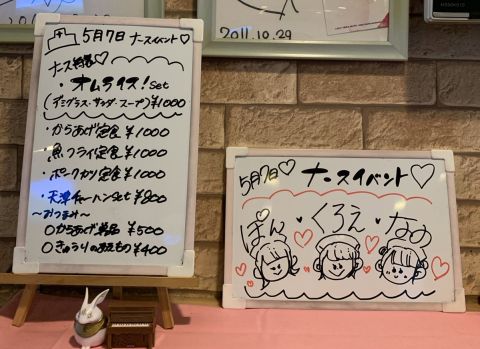 2011.10.29
5月7日 ナースイベント♡
ナース特製♡
・オムライス!set
(デミグラス・サラダ・スープ)¥1000
・からあげ定食¥1000
・魚フライ定食¥1000
・ポークカツ定食¥1000
・天津チャーハンset ¥800
〜おつまみ〜
○からあげ単品¥500
○きゅうりのあえもの¥400
5月7日♡ ナースイベント♡
ぽん・くろえ・なの